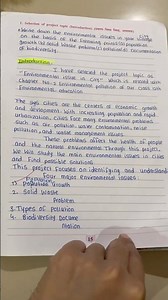 1. Selection of project topic (Introduction)
• Write down the Environmental issues in your city
on the basis of the following points (1) population
growth (2) solid waste problem (3) pollution (4)
of biodiversity.
Introduction
I have selected the project topic as
"Environmental issues in City" which is related with
Chapter No. 2 Environmental pollution of the class
Environmental education.
The cities are the centers of economic growth
and development with increasing population and rapid
urbanization, cities face many Environmental problems
Such as air pollution, water contamination, noise
pollution, and waste management issues.
These problems affect the health of people
and the natural environment. Through this project,
We will study the main environmental issues in Cities
and find possible solutions.
This project focuses on identifying and understanding
four major environmental issues.
1) Population Growth
2. Solid Waste
Problem
3. Types of pollution
4. Biodiversity